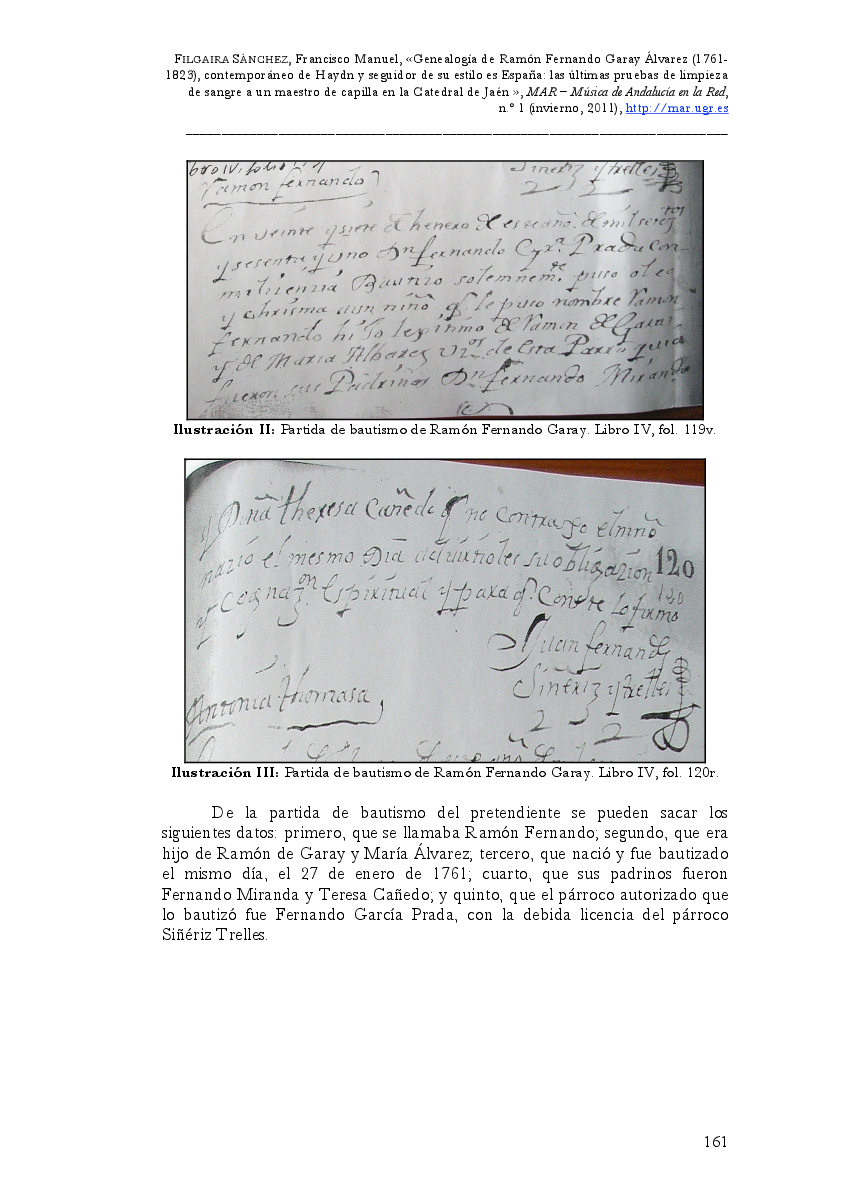 FILGAIRA SÁNCHEZ, Francisco Manuel, «Genealogía de Ramón Fernando Garay Álvarez (1761-
1823), contemporáneo de Haydn y seguidor de su estilo es España: las últimas pruebas de limpieza
de sangre a un maestro de capilla en la Catedral de Jaén », MAR – Música de Andalucía en la Red,
n.º 1 (invierno, 2011), http://mar.ugr.es
bro IV, folio
Siñeriz y trelles
Ramon fernando
2 3 2
En veinte y siete de henero de este año de mil setez
tos
y sesenta y uno Dn fernando Gra. Prada con
mi lizenzia Bautizo solemneme. puso oleo
te
y chrisma a un niño q. le puso nombre Ramon
fernando hijo lexitimo de Ramon de Garai
y de Maria Albarez vzos de esta Parroquia
fueron sus Padrinos Dn fernando Miranda
Ilustración II: Partida de bautismo de Ramón Fernando Garay. Libro IV, fol. 119v.
y Dña theresa Cañedo q no contraxo el niño
nazió el mesmo Dia adviertioles su obligazion 120
y Cognazon. Espiritual y para q. Conste lo firmo
120
Juan fernandz
Siñeriz y trelles
Antonia thomasa
2 3 2
Ilustración III: Partida de bautismo de Ramón Fernando Garay. Libro IV, fol. 120r.
De la partida de bautismo del pretendiente se pueden sacar los
siguientes datos: primero, que se llamaba Ramón Fernando; segundo, que era
hijo de Ramón de Garay y María Álvarez; tercero, que nació y fue bautizado
el mismo día, el 27 de enero de 1761; cuarto, que sus padrinos fueron
Fernando Miranda y Teresa Cañedo; y quinto, que el párroco autorizado que
lo bautizó fue Fernando García Prada, con la debida licencia del párroco
Siñériz Trelles.
161